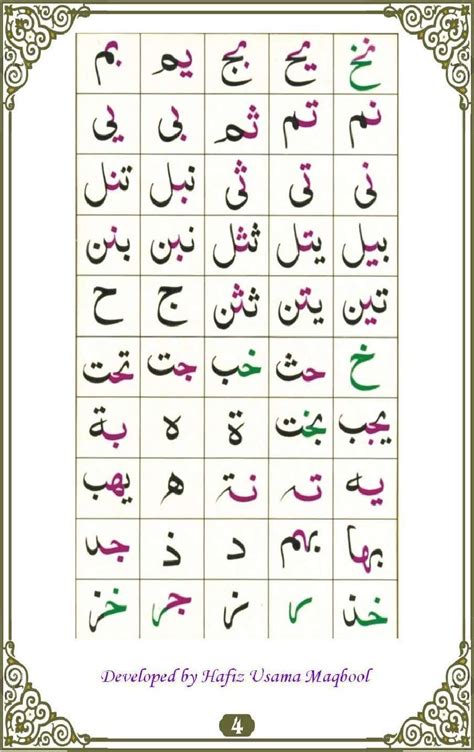 نخ یح بج یم بم
نم تم ثم بی یی
نی تی ثی نبل تنل
بیل یتل ثثل نبن بنن
تین یتن ثثن ج ح
خ حث خب جت تحت
یجب بخت ة ه بة
یه ته نة ه یهب
بها بهم د ذ جد
خذ ر ز جر خز
Developed by Hafiz Usama Maqbool
4